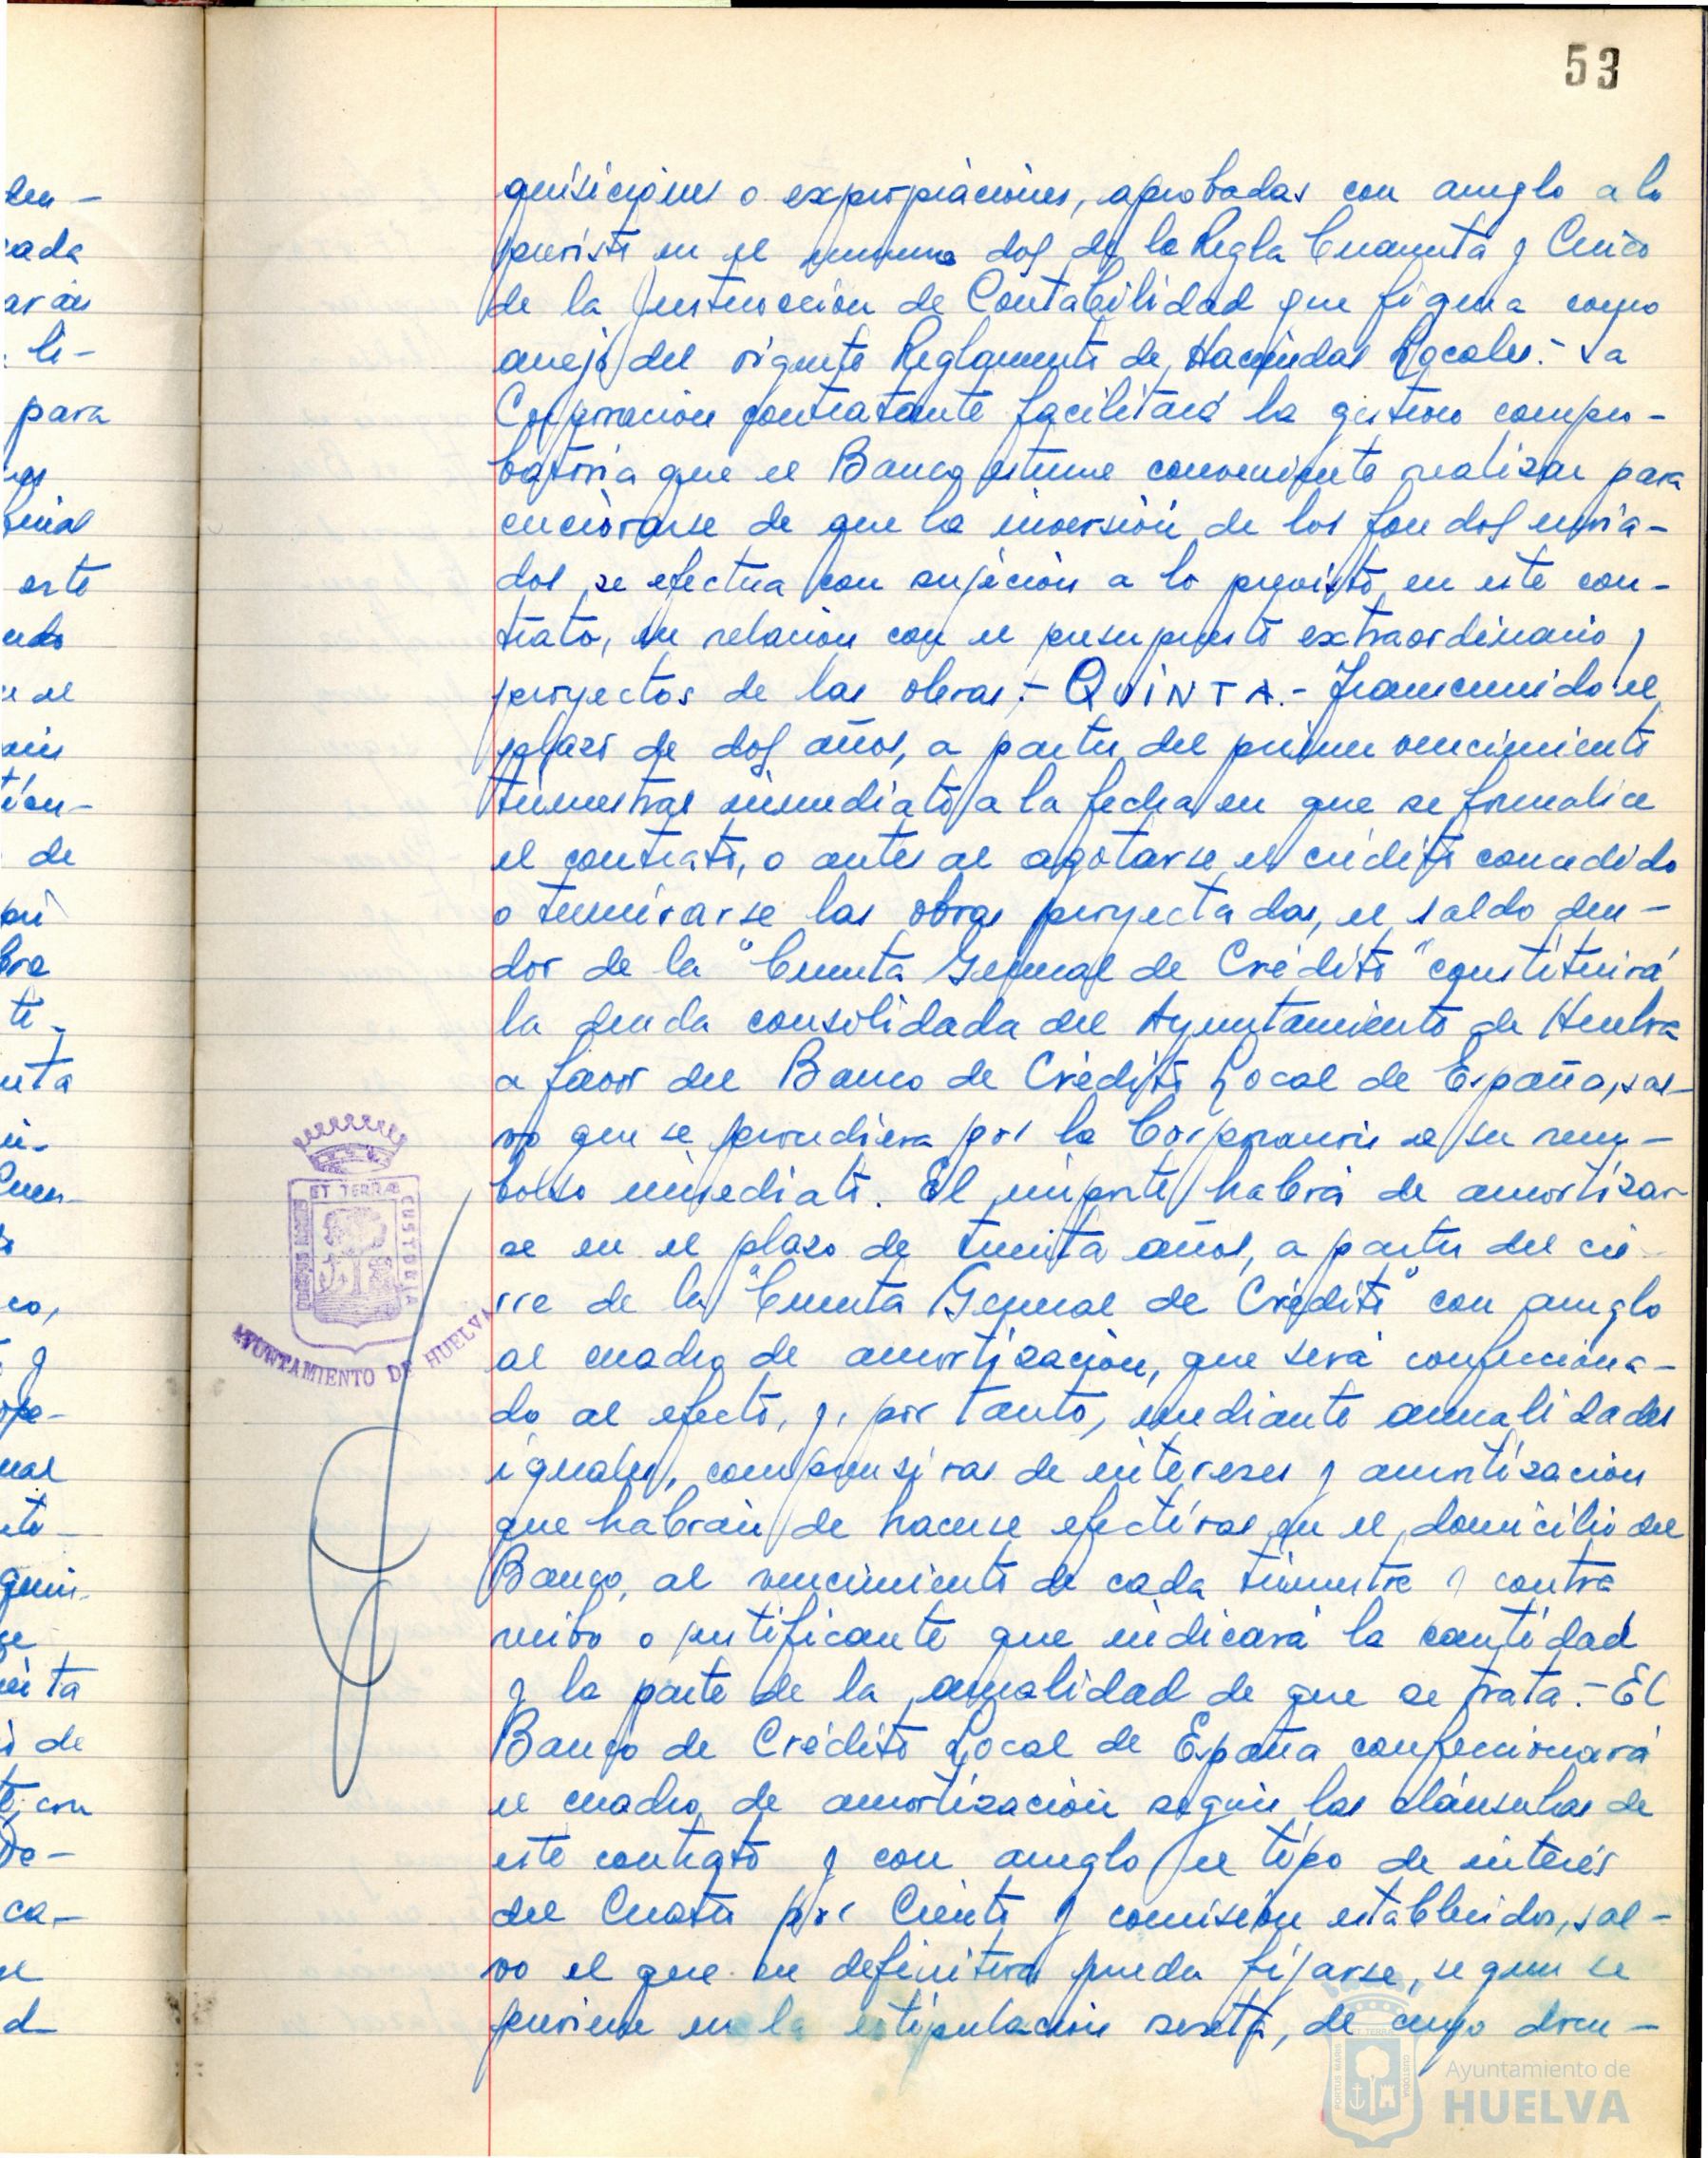 53
quisiciones o expropiaciones, aprobadas con arreglo a lo
previsto en el número dos de la Regla Cuarenta y Cinco
de la Instrucción de Contabilidad que figura como
anejo del vigente Reglamento de Haciendas Locales.- La
Corporación contratante facilitará la gestión compro-
batoria que el Banco estime conveniente realizar para
cerciorarse de que la inversión de los fondos envia-
dos se efectua con sujeción a lo previsto en este con-
trato, en relación con el presupuesto extraordinario y
proyectos de las obras.- QUINTA.- Transcurrido el
plazo de dos años, a partir del primer vencimiento
trimestral inmediato a la fecha en que se formalice
el contrato, o antes al agotarse el crédito concedido
o terminarse las obras proyectadas, el saldo deu-
dor de la "Cuenta General de Crédito" constituirá
la deuda consolidada del Ayuntamiento de Huelva
a favor del Banco de Crédito Local de España, sal-
vo que se procediera por la Corporación al su reem-
bolso inmediato. El importe habrá de amortizar
se en el plazo de treinta años, a partir del cie-
rre de la "Cuenta General de Crédito" con arreglo
al cuadro de amortización, que será confecciona-
do al efecto, y, por tanto, mediante anualidades
iguales, comprensivas de intereses y amortización
que habrán de hacerse efectivas en el domicilio del
Banco, al vencimiento de cada trimestre y contra
recibo o justificante que indicará la cantidad
y la parte de la anualidad de que se trata.- El
Banco de Crédito Local de España confeccionará
el cuadro de amortización según las cláusulas de
este contrato y con arreglo al tipo de interés
del Cuatro por Ciento y comisión establecidos, sal-
vo el que en definitiva pueda fijarse, segun se
previene en la estipulación sexta, de cuyo docu-
ET TERRAE
CUSTODIA
PORTUS MARIS
AYUNTAMIENTO DE HUELVA
Ayuntamiento de
HUELVA